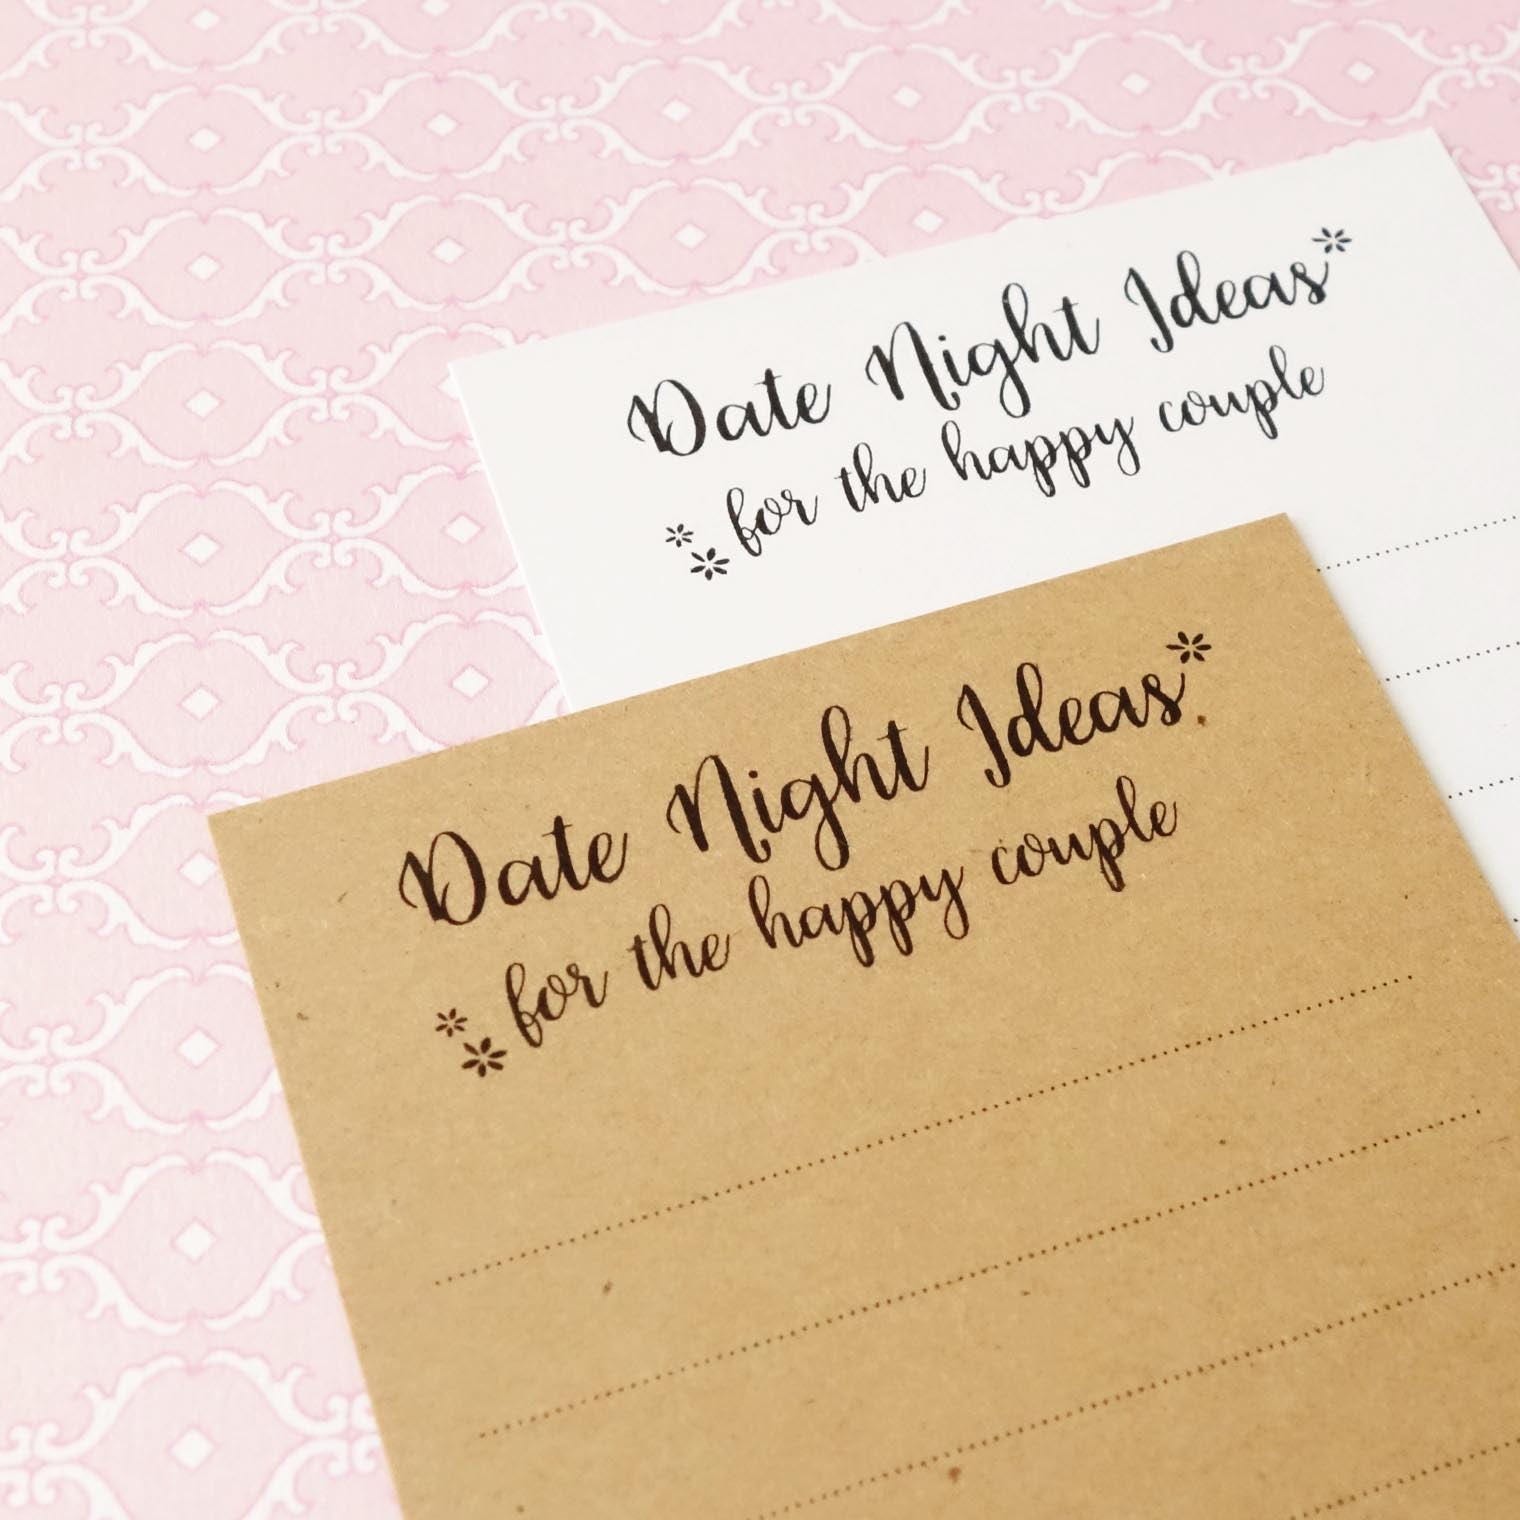 Date Night Ideas
for the happy couple
Date Night Ideas
for the happy couple